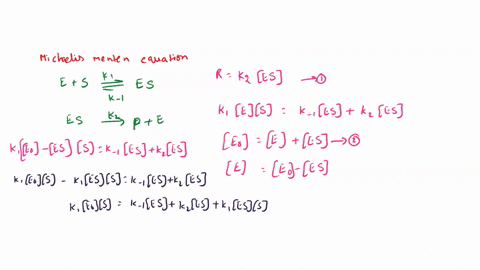 Michaelis menten equation
E + S ⇌ ES
K1
K-1
ES → P + E
K2
K1([E0] - [ES]) [S] = K-1[ES] + K2[ES]
K1[E0][S] - K1[ES][S] = K-1[ES] + K2[ES]
K1[E0][S] = K-1[ES] + K2[ES] + K1[ES][S]
R = K2 [ES] → ①
K1 [E][S] = K-1[ES] + K2 [ES]
[E0] = [E] + [ES] → ②
[E] = [E0] - [ES]